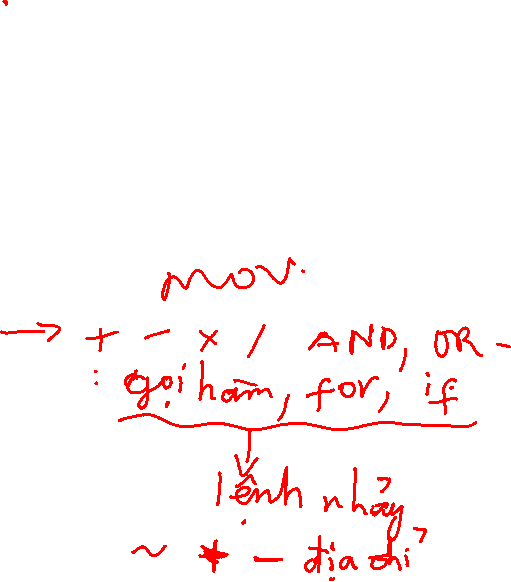 mov.
→ + - x / AND, OR -
: gọi hàm, for, if
lệnh nhảy
~ * - địa chỉ